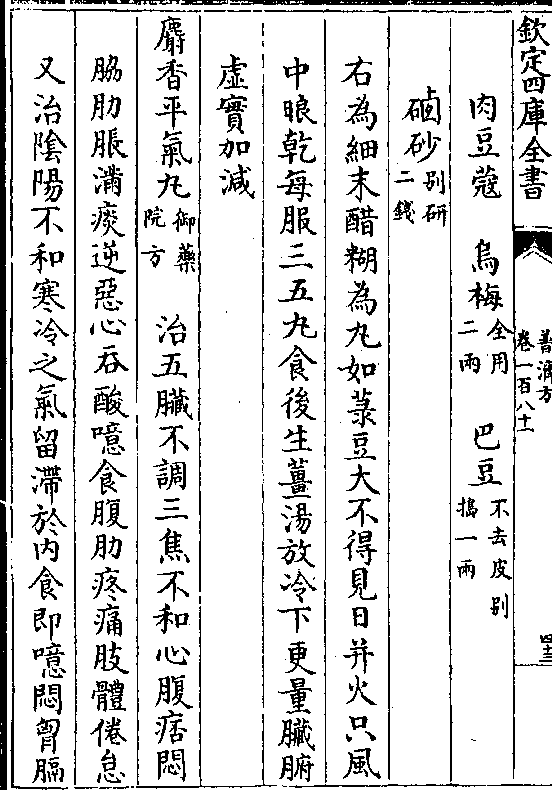 欽定四庫全書
普濟方
卷一百八十一
四十三
肉豆蔻　烏梅全用二兩　巴豆不去皮别搗一兩
硇砂别研二錢
右為細末醋糊為丸如菉豆大不得見日并火只風
中眼乾每服三五丸食後生薑湯放冷下更量臟腑
虛實加減
麝香平氣丸御藥院方　治五臟不調三焦不和心腹痞悶
脇肋脹滿痰逆惡心吞酸噫食腹肋疼痛肢體倦怠
又治陰陽不和寒冷之氣留滯於内食即噫悶胷膈